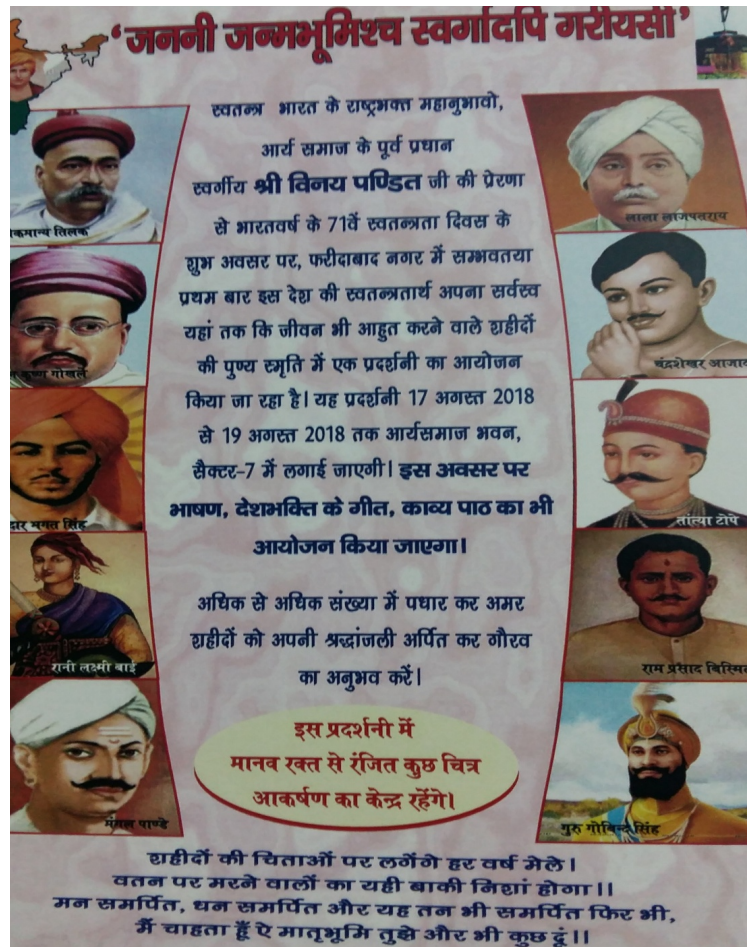 ‘जननी जन्मभूमिश्च स्वर्गादपि गरीयसी’
स्वतन्त्र भारत के राष्ट्रभक्त महानुभावो,
आर्य समाज के पूर्व प्रधान
स्वर्गीय श्री विनय पण्डित जी की प्रेरणा
से भारतवर्ष के 71वें स्वतन्त्रता दिवस के
शुभ अवसर पर, फरीदाबाद नगर में सम्भवतया
प्रथम बार इस देश की स्वतन्त्रतार्थ अपना सर्वस्व
यहां तक कि जीवन भी आहुत करने वाले शहीदों
की पुण्य स्मृति में एक प्रदर्शनी का आयोजन
किया जा रहा है। यह प्रदर्शनी 17 अगस्त 2018
से 19 अगस्त 2018 तक आर्यसमाज भवन,
सैक्टर-7 में लगाई जाएगी। इस अवसर पर
भाषण, देशभक्ति के गीत, काव्य पाठ का भी
आयोजन किया जाएगा।
अधिक से अधिक संख्या में पधार कर अमर
शहीदों को अपनी श्रद्धांजली अर्पित कर गौरव
का अनुभव करें।
इस प्रदर्शनी में
मानव रक्त से रंजित कुछ चित्र
आकर्षण का केन्द्र रहेंगे।
कमान्य तिलक
कृष्ण गोखले
दार भगत सिंह
रानी लक्ष्मी बाई
मंगल पाण्डे
लाला लाजपतराय
चंद्रशेखर आजाद
तांत्या टोपे
राम प्रसाद बिस्मि
गुरु गोबिन्द सिंह
शहीदों की चिताओं पर लगेंगे हर वर्ष मेले।
वतन पर मरने वालों का यही बाकी निशां होगा।।
मन समर्पित, धन समर्पित और यह तन भी समर्पित फिर भी,
मैं चाहता हूँ ऐ मातृभूमि तुझे और भी कुछ दूं।।